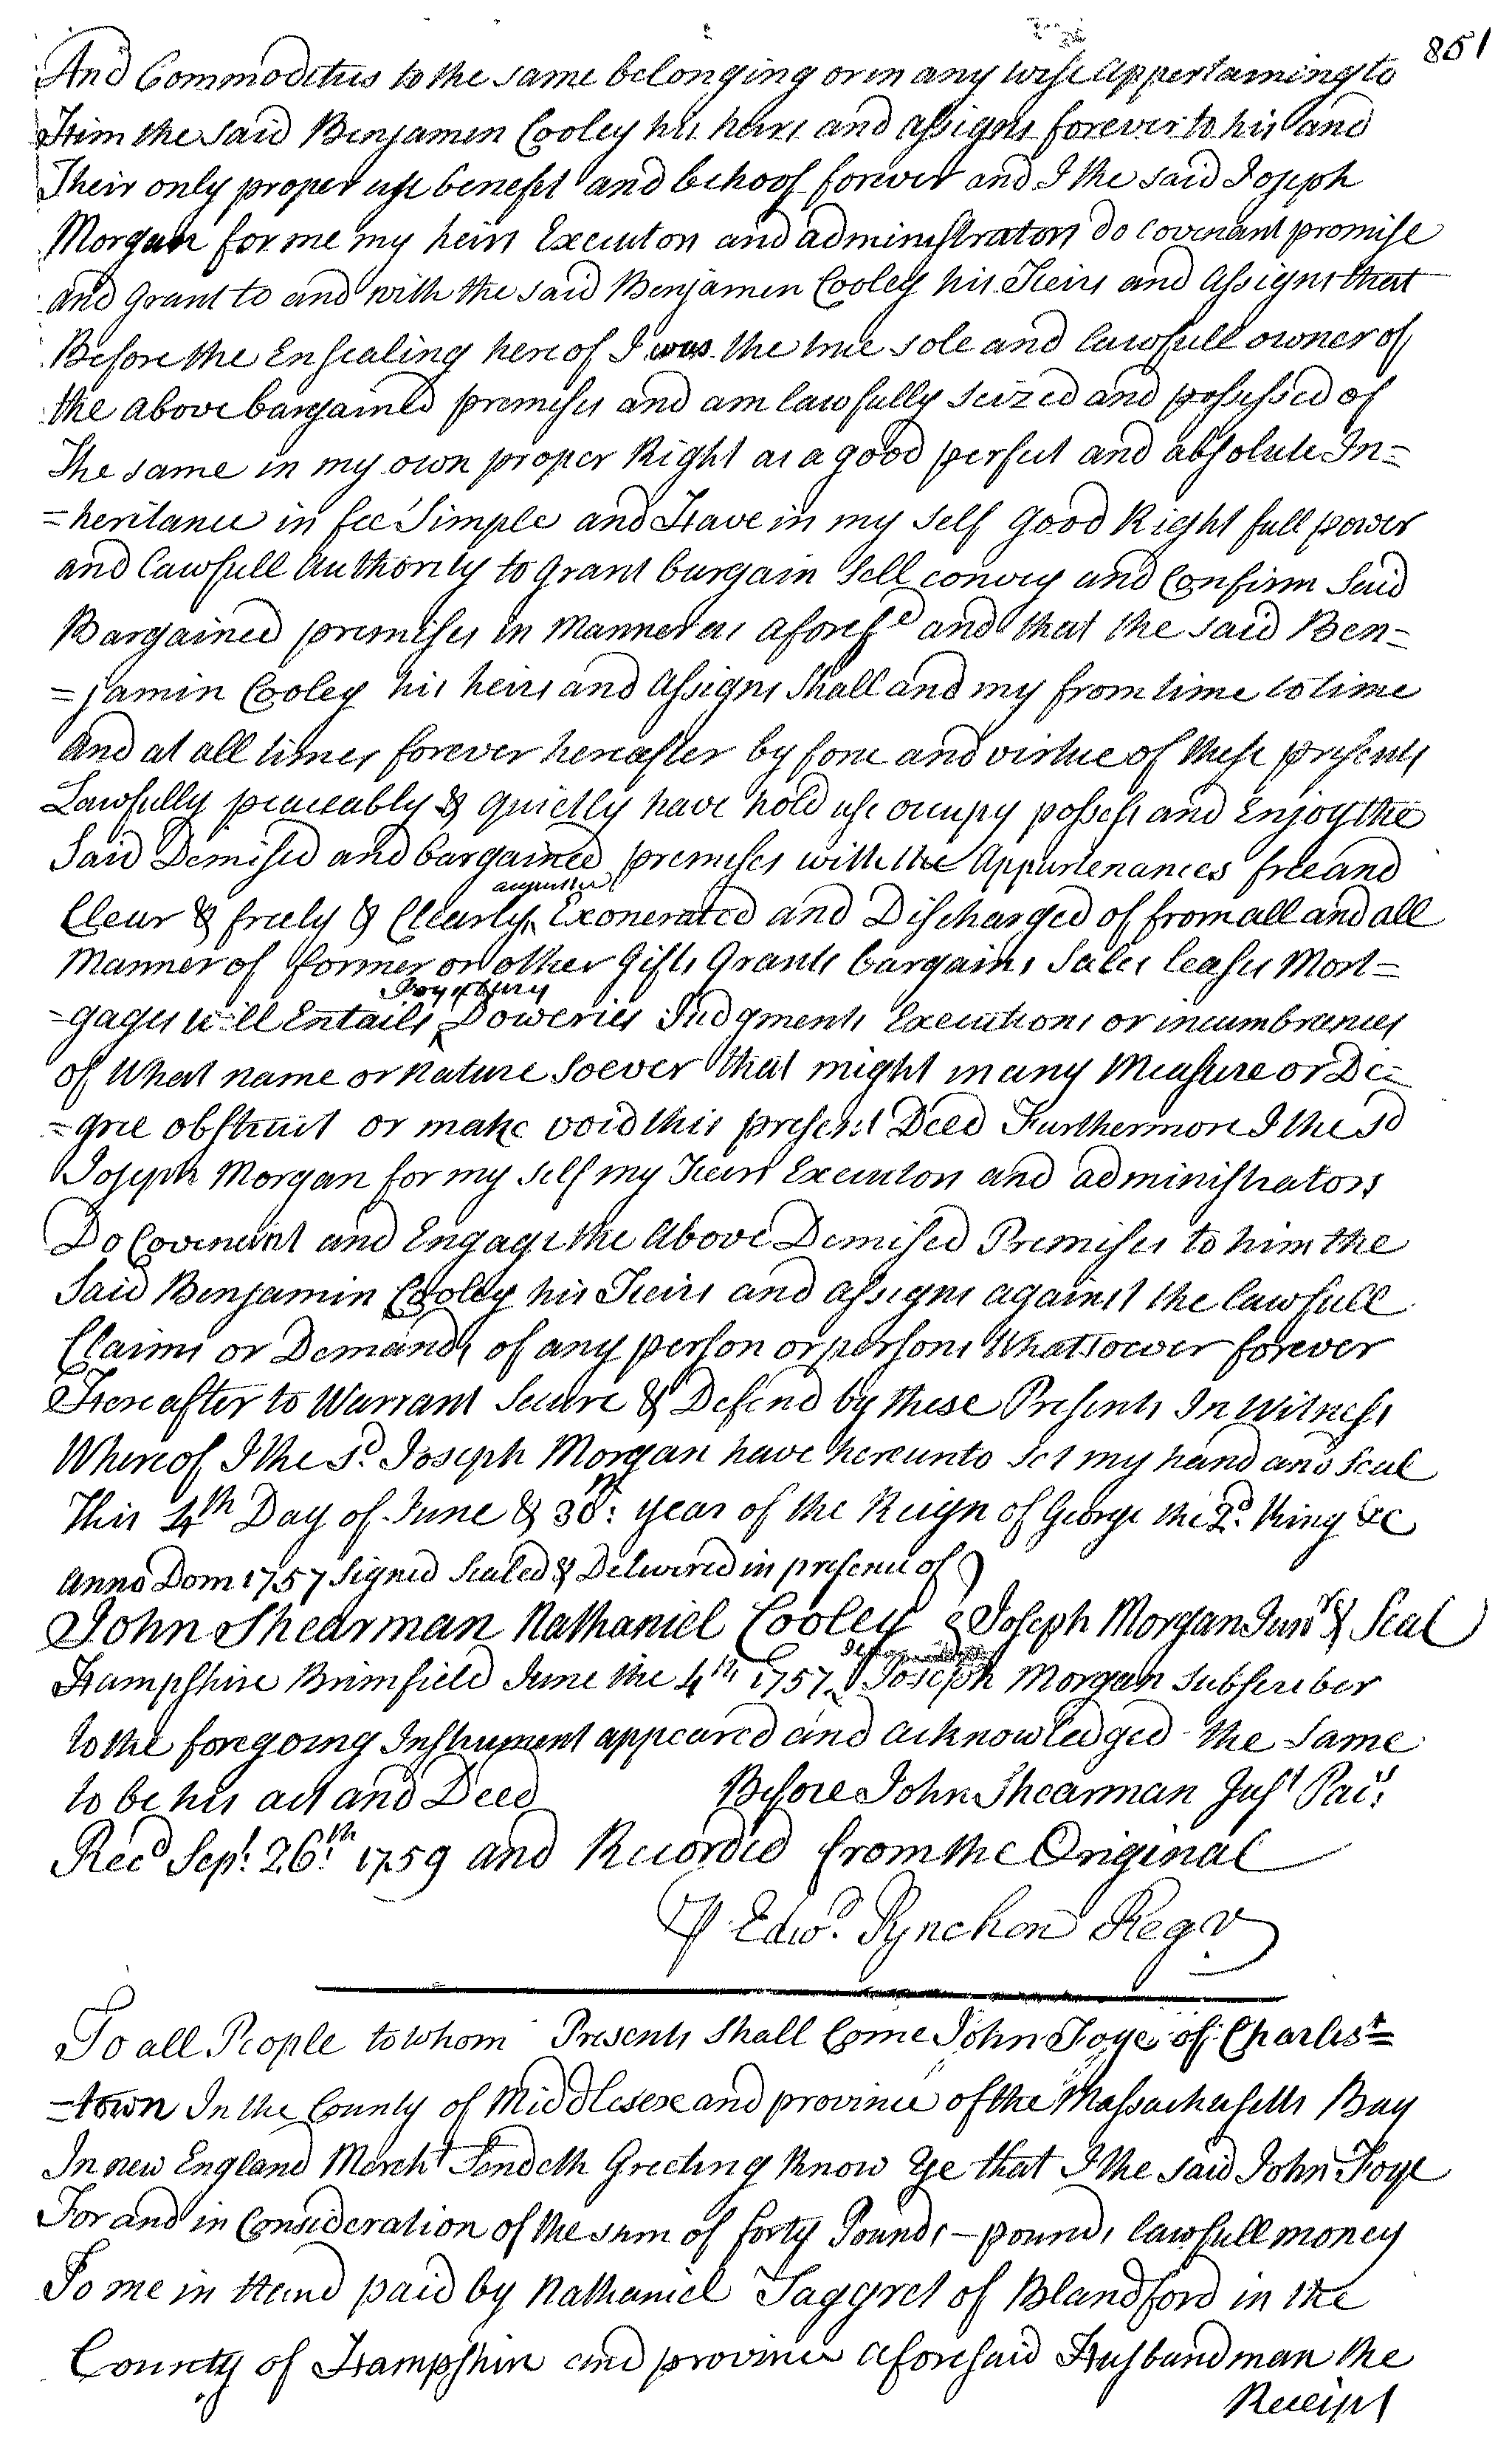 851
And Commodities to the same belonging or in any wise Appertaining to
Him the Said Benjamen Cooley his heirs and assigns forever to his and
Their only proper use benefit and behoof forever and I the said Joseph
Morgan for me my heirs Executors and administrators do Covenant promise
and Grant to and with the said Benjamen Cooley his Heirs and Assigns that
Before the Ensealing hereof I was the true sole and lawfull owner of
the above bargained premises and am lawfully seized and possessed of
The same in my own proper Right as a good perfect and absolute In=
=heritance in fee Simple and Have in my Self Good Right full power
and Lawfull Authority to Grant bargain Sell convey and Confirm Said
Bargained premises in Manner as afores.d and that the said Ben=
=jamin Cooley his heirs and Assigns Shall and my from time to time
And at all times forever hereafter by force and virtue of these presents
Lawfully peaceably & quietly have hold use occupy possess and Enjoy the
Said Demised and bargained premises with the Appurtenances free and
Clear & freely & Clearly Exonerated and Discharged of from all and all
Manner of former or other Gifts Grants bargains Sales leases Mort=
=gages Will Entails Doweries Judgments Executions or incumbrances
of What name or Nature Soever that might in any Measure or De=
=gree obstruct or make void this present Deed Furthermore I the sd
Joseph Morgan for my Self my Heirs Executors and administrators
Do Covenant and Engage the Above Demised Premises to him the
Said Benjamin Cooley his Heirs and assigns against the lawfull
Claims or Demands of any person or persons Whatsoever forever
Hereafter to Warrant Secure & Defend by these Presents In Witness
Whereof I the sd. Joseph Morgan have hereunto set my hand and Seal
This 4th Day of June & 30th: year of the Reign of George the 2d. King &C
Anno Dom 1757 Signed Sealed & Delivered in presence of
John Shearman Nathaniel Cooley } Joseph Morgan Junr & Seal
Hampshire Brimfield June the 4th 1757 Joseph Morgan Subscriber
to the foregoing Instrument appeared and acknowledged the Same
to be his act and Deed Before John Shearman Just Pacis
Recd Sept. 26th: 1759 and Recorded from the Original
P Edwd. Pynchon Regr
To all People to whom Presents Shall Come John Foye of Charlest=
=town In the County of Middlesex and province of the Massachusetts Bay
In new England Mercht Sendeth Greeting Know Ye that I the said John Foye
For and in Consideration of the sum of forty Pounds - pounds lawfull money
To me in Hand paid by Nathaniel Taggret of Blandford in the
County of Hampshire and province aforesaid Husbandman the
Receipt